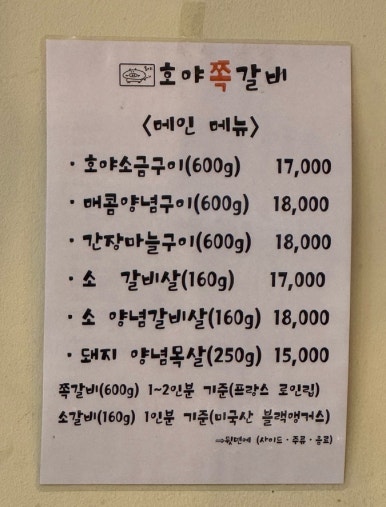 호야쪽갈비
<메인 메뉴>
· 호야소금구이(600g) 17,000
· 매콤양념구이(600g) 18,000
· 간장마늘구이(600g) 18,000
· 소 갈비살(160g) 17,000
· 소 양념갈비살(160g) 18,000
· 돼지 양념목살(250g) 15,000
쪽갈비(600g) 1~2인분 기준(프랑스 로인립)
소갈비(160g) 1인분 기준(미국산 블랙앵거스)
⇨뒷면에 (사이드·주류·음료)